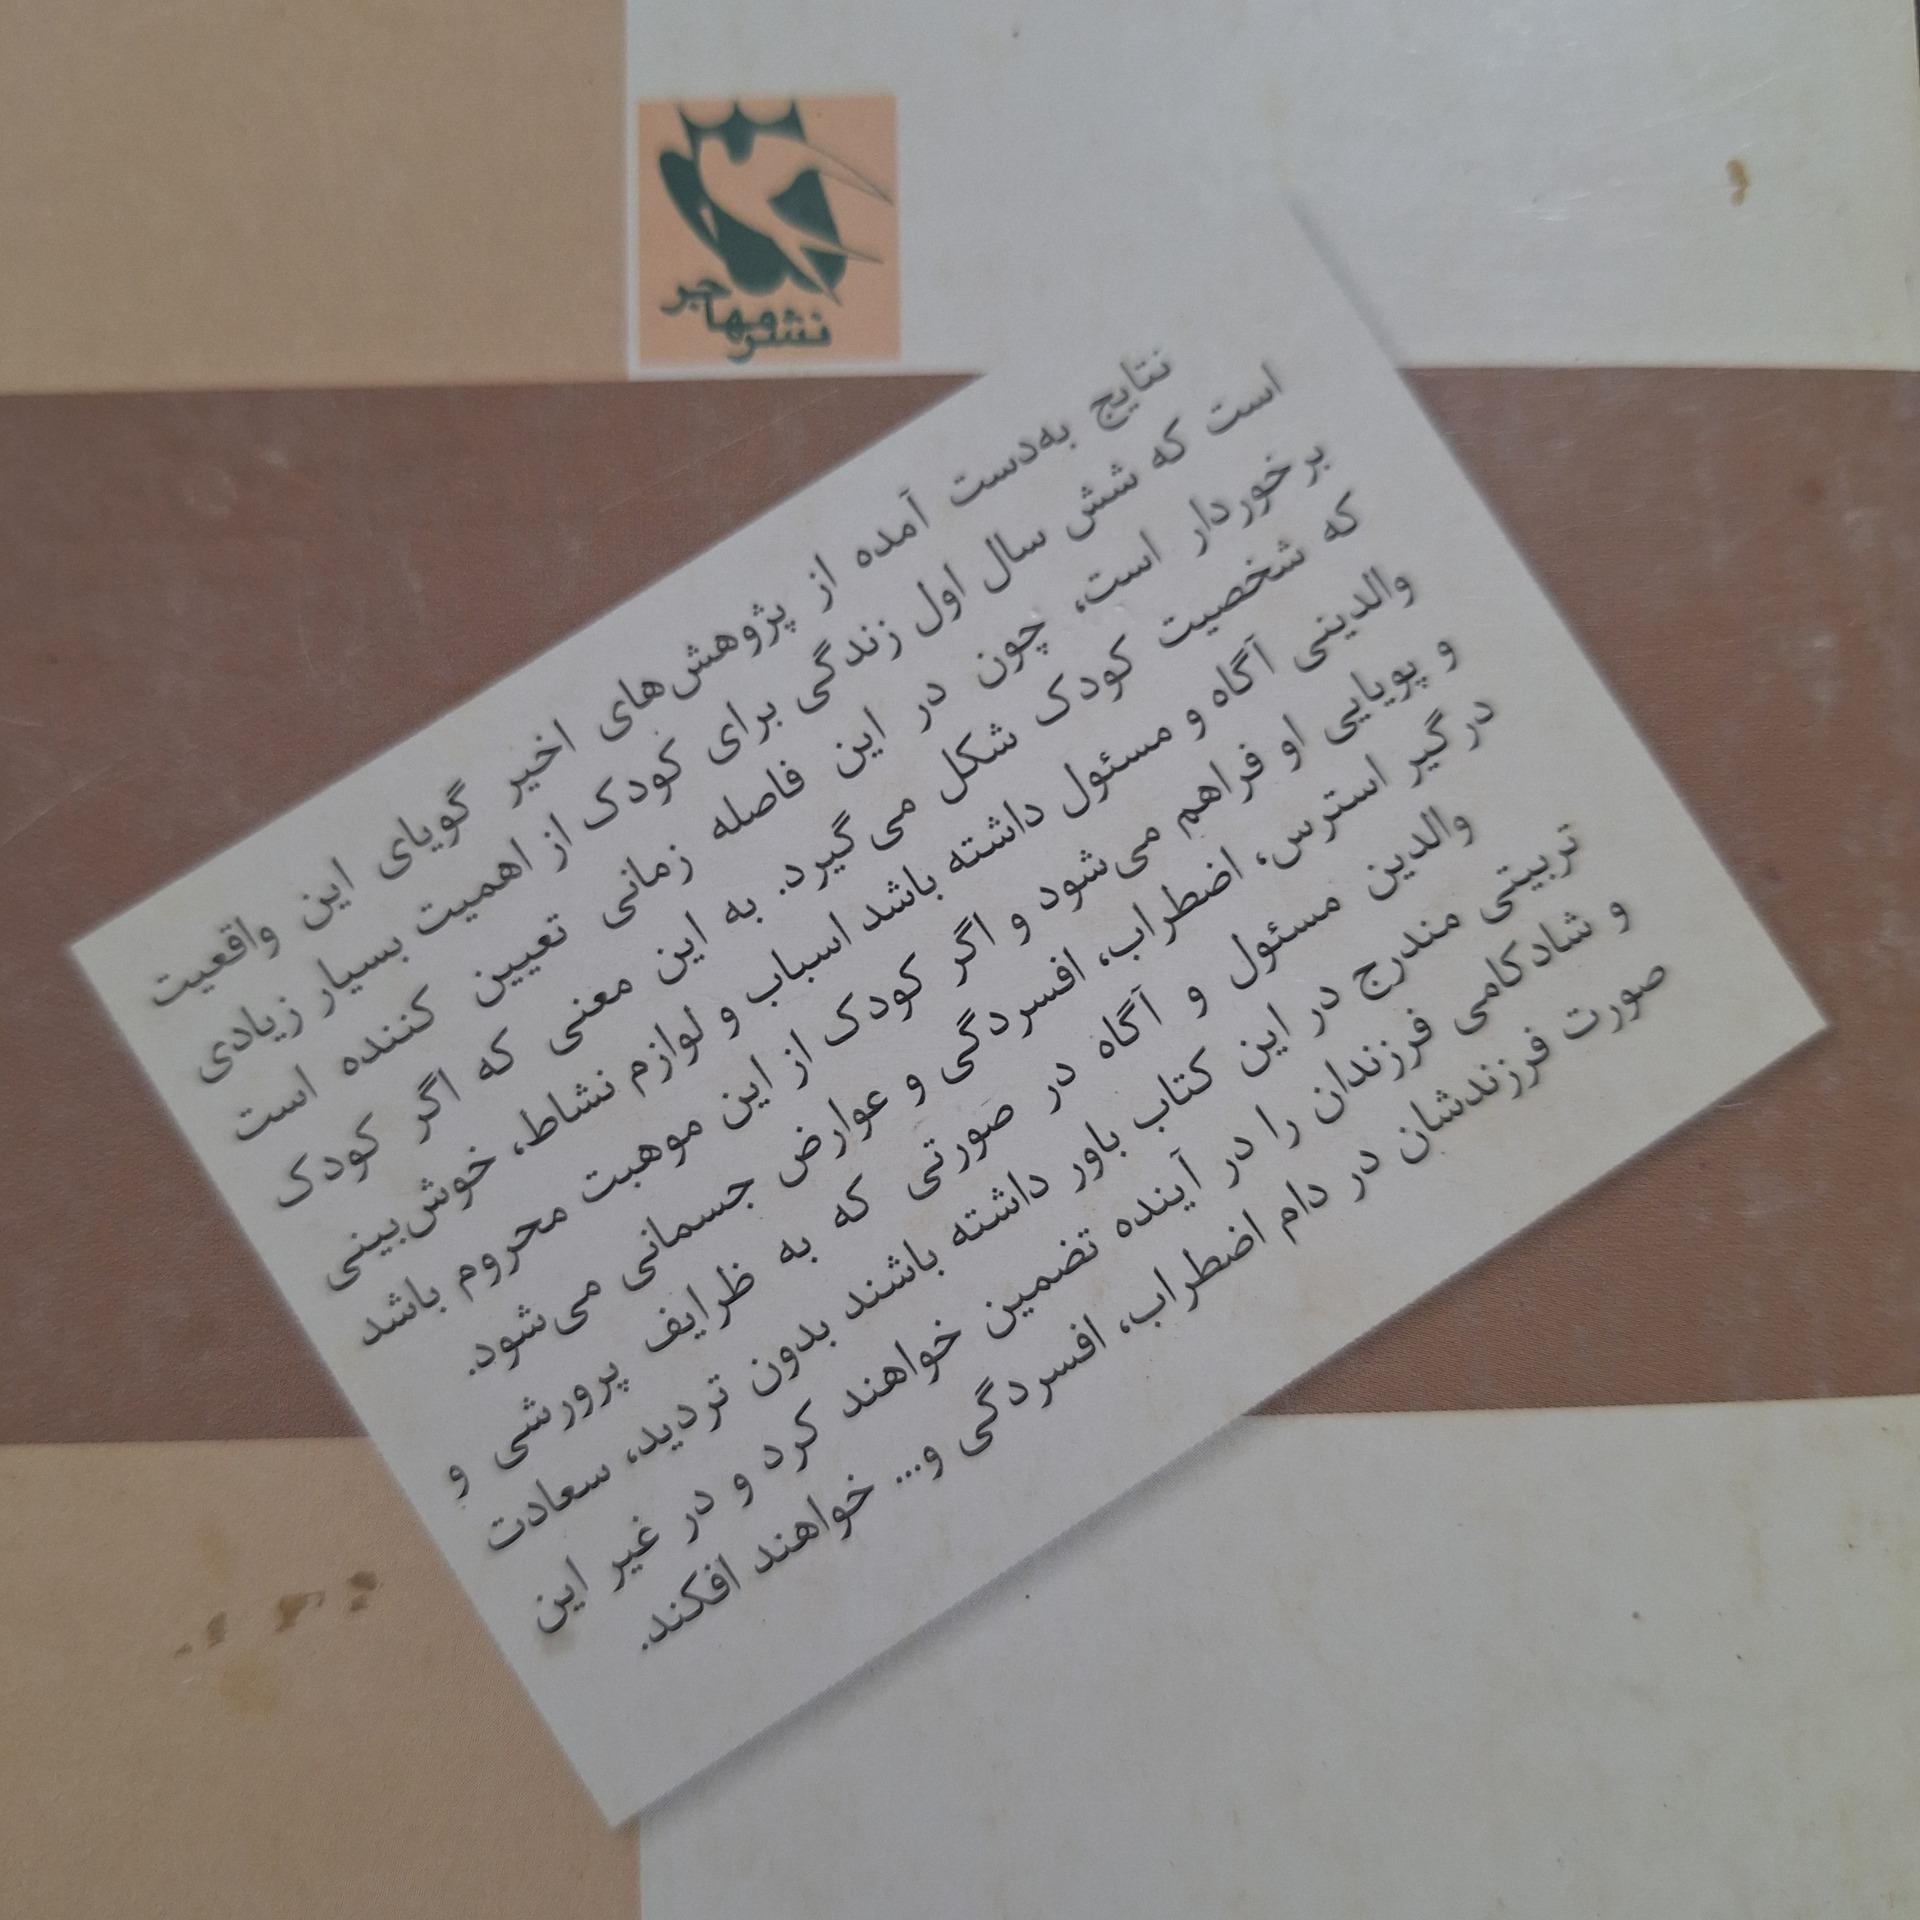 نشر مهاجر
نتایج به‌دست آمده از پژوهش‌های اخیر گویای این واقعیت
است که شش سال اول زندگی برای کودک از اهمیت بسیار زیادی
برخوردار است، چون در این فاصله زمانی تعیین کننده است
که شخصیت کودک شکل می‌گیرد. به این معنی که اگر کودک
والدینی آگاه و مسئول داشته باشد اسباب و لوازم نشاط، خوش‌بینی
و پویایی او فراهم می‌شود و اگر کودک از این موهبت محروم باشد
درگیر استرس، اضطراب، افسردگی و عوارض جسمانی می‌شود.
والدین مسئول و آگاه در صورتی که به ظرایف پرورشی و
تربیتی مندرج در این کتاب باور داشته باشند بدون تردید، سعادت
و شادکامی فرزندان را در آینده تضمین خواهند کرد و در غیر این
صورت فرزندشان در دام اضطراب، افسردگی و... خواهند افکند.